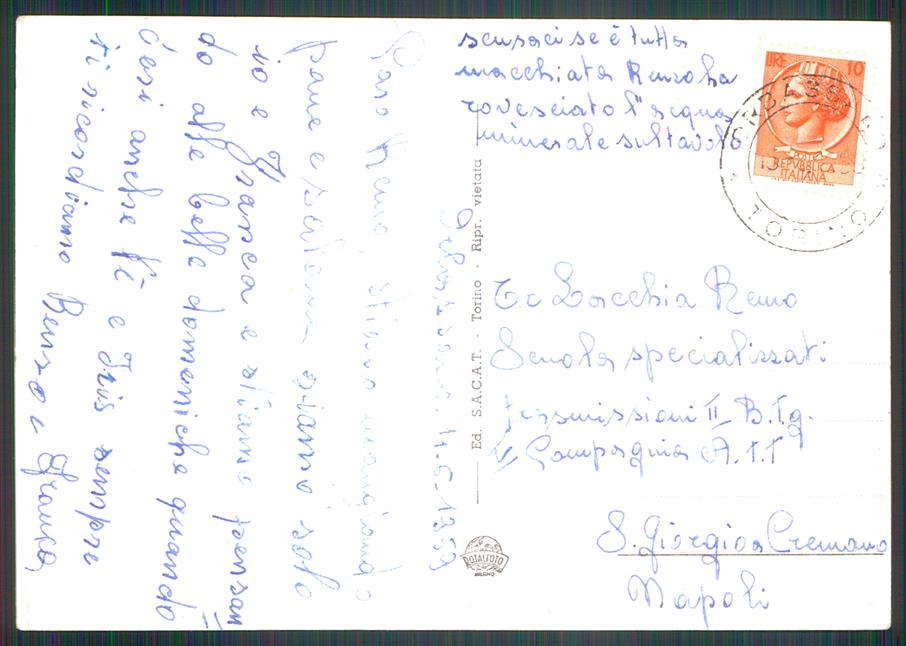 scusaci se è tutta
macchiata Renzo ha
rovesciato l'acqua
minerale sul tavolo
LIRE 10
POSTE
REPVBBLICA
ITALIANA
ORBASSANO
TORINO
Orbassano 4-6-1959
Caro Remo, stiamo mangiando
pane e salame siamo solo
io e Franca e stiamo pensan
do alle belle domeniche quando
c'eri anche te e Iris sempre
ti ricordiamo Renzo e Franca
Ed. S.A.C.A.T. - Torino - Ripr. vietata
ROTALFOTO
MILANO
Zacchia Remo
Scuola specializzati
Trasmissioni II B.T.g.
Compagnia A.T.T
S. Giorgio a Cremano
Napoli